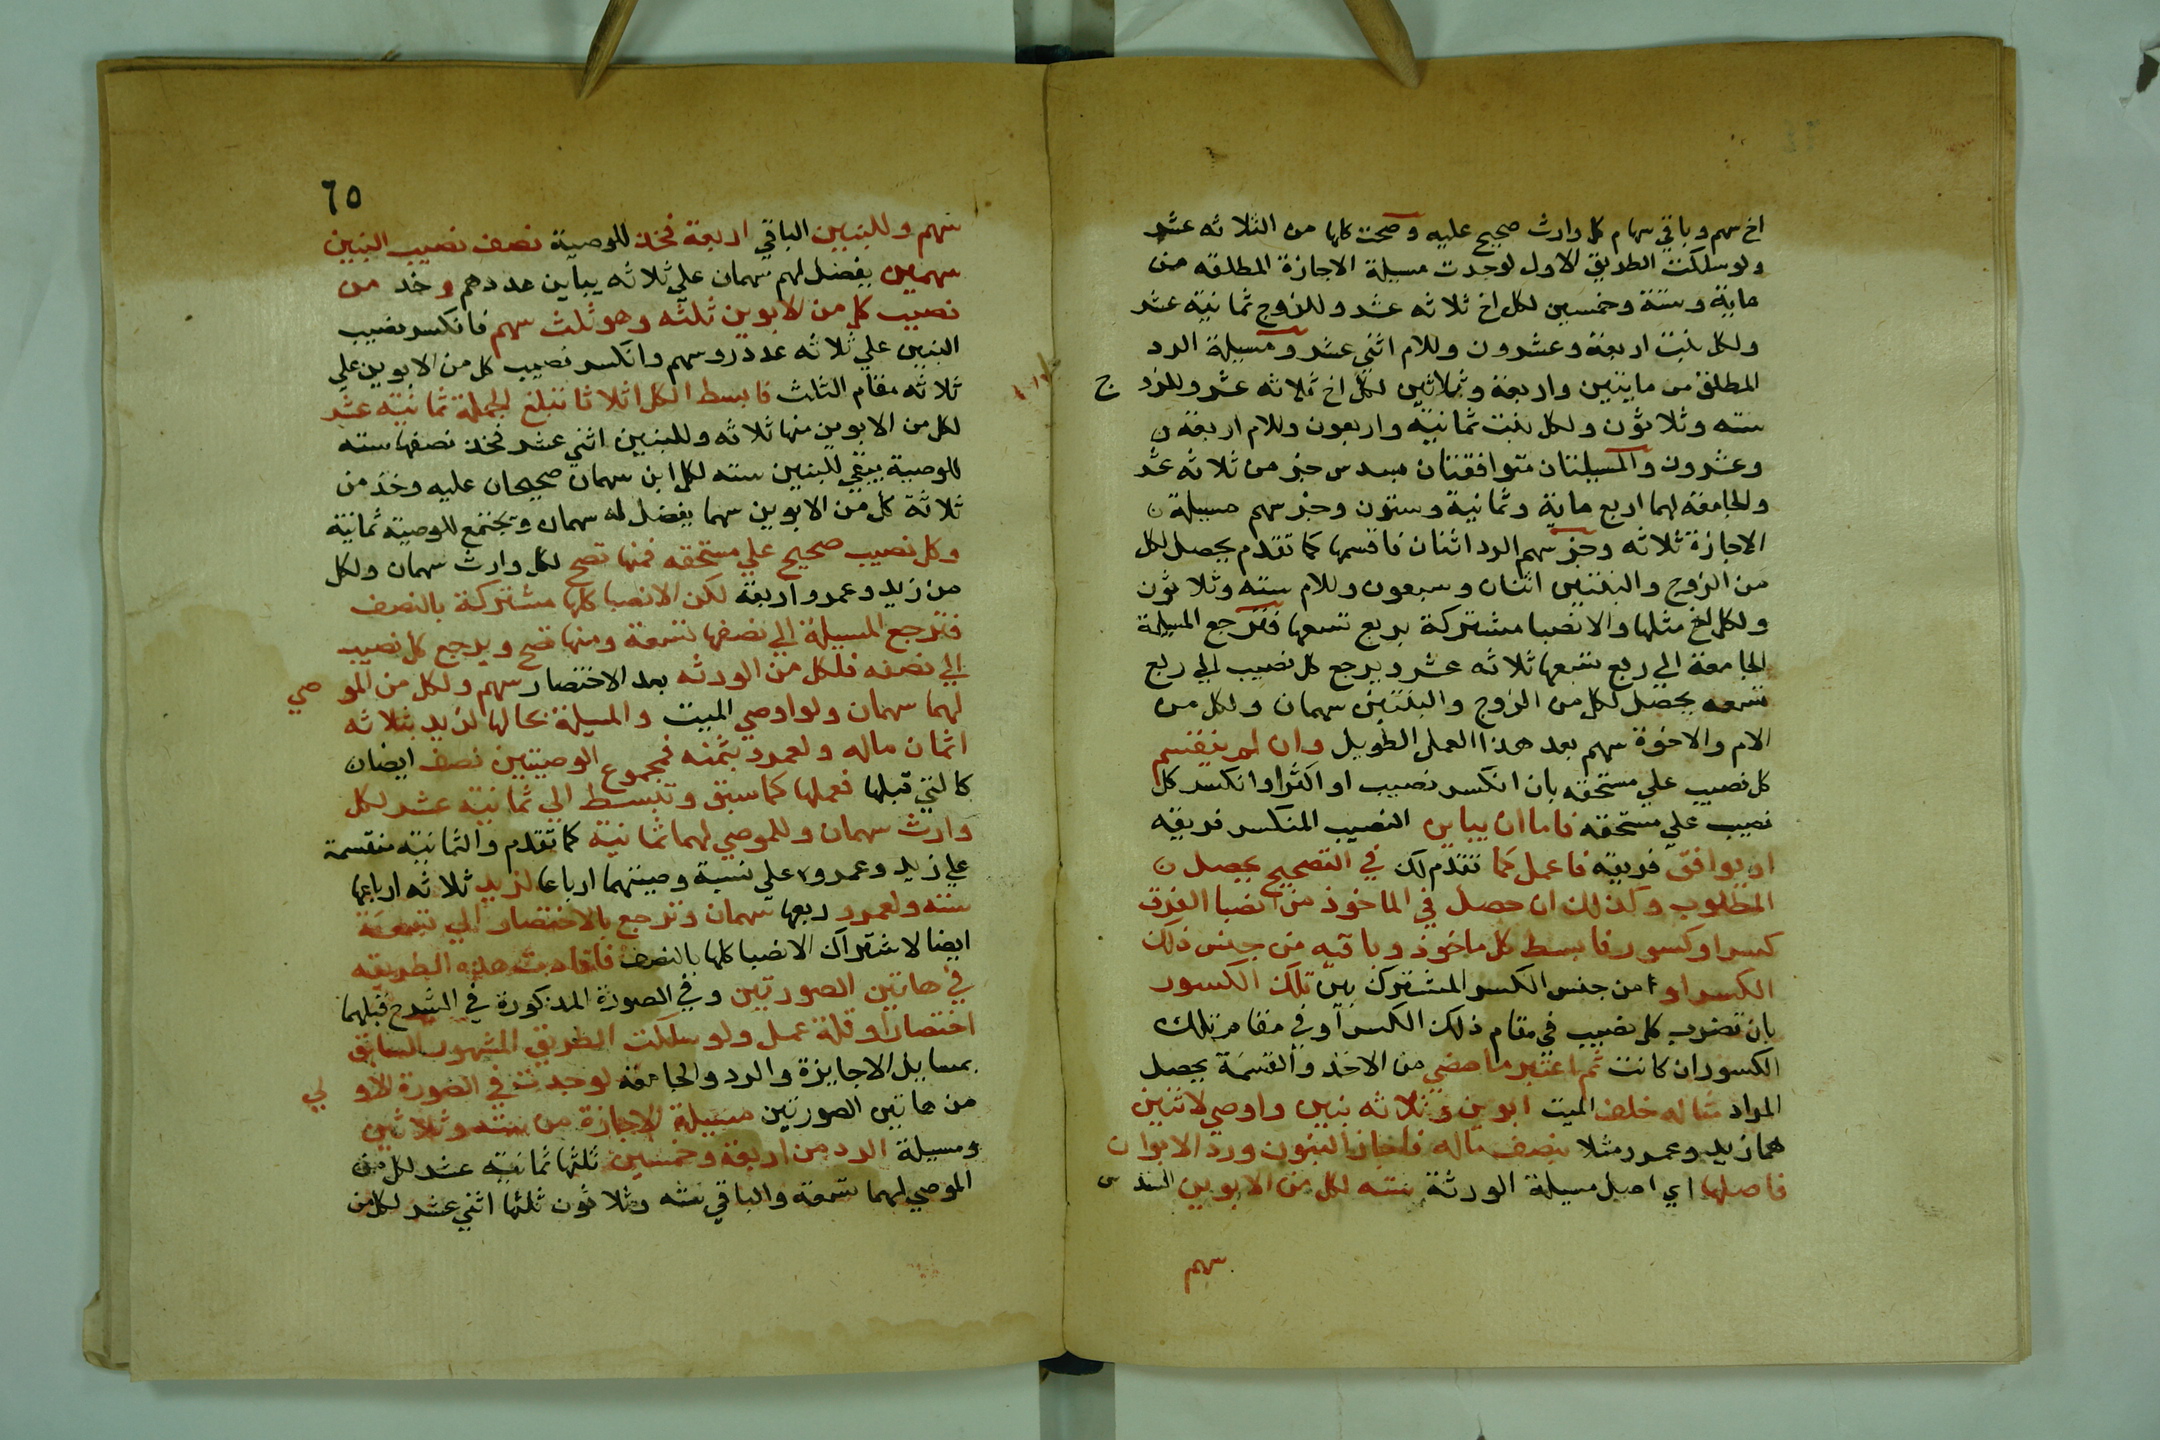 اخ سهم وباقي سهام كل وارث صحيح عليه وصحت كلها من الثلاثه عشر
ولو سلكت الطريق الاول لوجدت مسيلة الاجازة المطلقه من
ماية وستة وخمسين لكل اخ ثلاثه عشر وللزوج ثمانية عشر
ولكل بنت اربعة وعشرون وللام اثني عشر ومسيلة الرد
المطلق من مايتين واربعة وثلاثين لكل اخ ثلاثه عشر وللزو ج
سته وثلاثون ولكل بنت ثمانية واربعون وللام اربعة
وعشرون والمسيلتان متوافقتان بسدس جز من ثلاثه عشر
والجامعة لهما اربع ماية وثمانية وستون وجز سهم مسيلة
الاجازة ثلاثه وجز سهم الرد اثنان فاقسمها كما تقدم يحصل لكل
من الزوج والبنتين اثنان وسبعون وللام سته وثلاثون
ولكل اخ مثلها والانصبا مشتركة بربع تسعها فترجع المسيلة
الجامعة الي ربع تسعها ثلاثه عشر ويرجع كل نصيب الي ربع
تسعه يحصل لكل من الزوج والبنتين سهمان ولكل من
الام والاخوة سهم بعد هذا العمل الطويل وان لم ينقسم
كل نصيب علي مستحقه بان انكسر نصيب او اكثر او انكسر كل
نصيب علي مستحقه فاما ان يباين النصيب المنكسر فريقه
او يوافق فريقه فاعمل كما تقدم لك في التصحيح يحصل
المطلوب وكذلك ان حصل في الماخوذ من انصبا الفرق
كسر او كسور فابسط كل ماخوذ وباقيه من جنس ذلك
الكسر او من جنس الكسر المشترك بين تلك الكسور
بان تضرب كل نصيب في مقام ذلك الكسر او في مقام تلك
الكسور ان كانت ثم اعتبر ما مضي من الاخذ والقسمة يحصل
المراد مثاله خلف الميت ابوين وثلاثه بنين واوصي لاثنين
هما زيد وعمرو مثلا بنصف ماله فاجاز البنون ورد الابوان
فاصلها اي اصل مسيلة الورثة سته لكل من الابوين السد س
سهم
٦٥
سهم وللبنين الباقي اربعة فخذ للوصية نصف نصيب البنين
سهمين يفضل لهم سهمان علي ثلاثه يباين عددهم وخذ من
نصيب كل من الابوين ثلثه وهو ثلث سهم فانكسر نصيب
البنين علي ثلاثه عدد روسهم وانكسر نصيب كل من الابوين علي
ثلاثه مقام الثلث فابسط الكل اثلاثا تبلغ الجملة ثمانية عشر
لكل من الابوين منها ثلاثه وللبنين اثني عشر فخذ نصفها سته
للوصية يبقي للبنين سته لكل ابن سهمان صحيحان عليه وخذ من
ثلاثة كل من الابوين سهما يفضل له سهمان ويجتمع للوصية ثمانية
وكل نصيب صحيح علي مستحقه فمنها تصح لكل وارث سهمان ولكل
من زيد وعمرو اربعة لكن الانصبا كلها مشتركة بالنصف
فترجع المسيلة الي نصفها تسعة ومنها تصح ويرجع كل نصيب
الي نصفه فلكل من الورثه بعد الاختصار سهم ولكل من المو صي
لهما سهمان ولو اوصي الميت والمسيلة بحالها لزيد بثلاثه
اثمان ماله ولعمرو بثمنه فمجموع الوصيتين نصف ايضا
كالتي قبلها فعملها كما سبق وتبسط الي ثمانية عشر لكل
وارث سهمان وللموصي لهما ثمانية كما تقدم والثمانية منقسمة
علي زيد وعمرو علي نسبة وصيتهما ارباعا لزيد ثلاثه ارباعها
سته ولعمرو ربعها سهمان وترجع بالاختصار الي تسعة
ايضا لاشتراك الانصبا كلها بالنصف فافادت هذه الطريقه
في هاتين الصورتين وفي الصورة المذكورة في الشرح قبلهما
اختصارا وقلة عمل ولو سلكت الطريق المشهور السابق
بمسايل الاجازة والرد والجامعة لوجدت في الصورة الاو لي
من هاتين الصورتين مسيلة الاجازة من سته وثلاثين
ومسيلة الرد من اربعة وخمسين ثلثها ثمانية عشر لكل من
الموصي لهما تسعة والباقي سته وثلاثون ثلثها اثني عشر لكل من